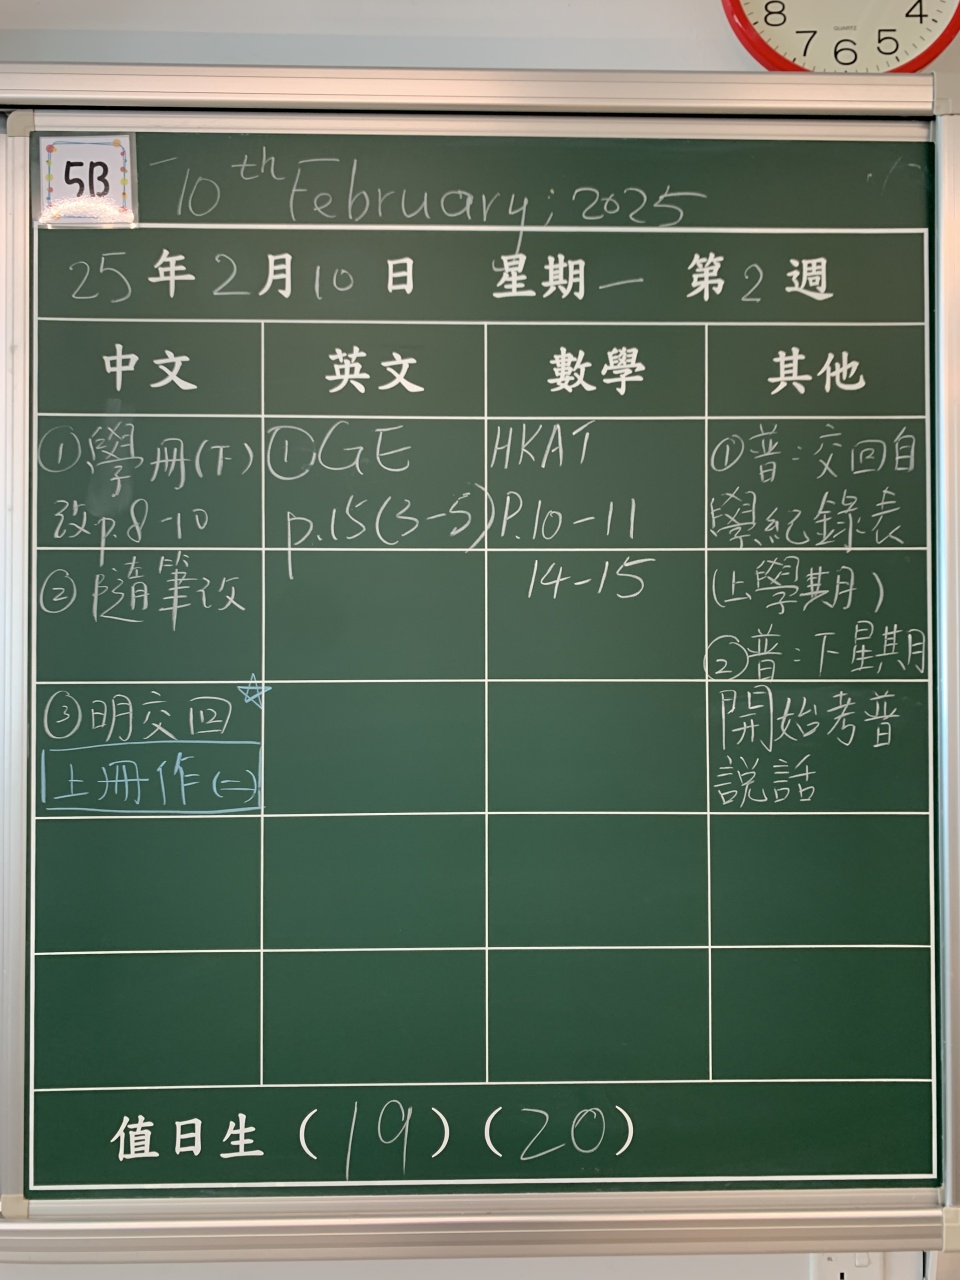 8 7 6 5 4
QUARTZ
5B
10th February, 2025
25年2月10日 星期一 第2週
中文 英文 數學 其他
①學冊(下)
改p.8-10
②隨筆改
③明交回☆
上冊作(二)
①GE
p.15(3-5)
HKAT
P.10-11
14-15
①普:交回自
學紀錄表
(上學期)
②普:下星期
開始考普
說話
值日生(19)(20)